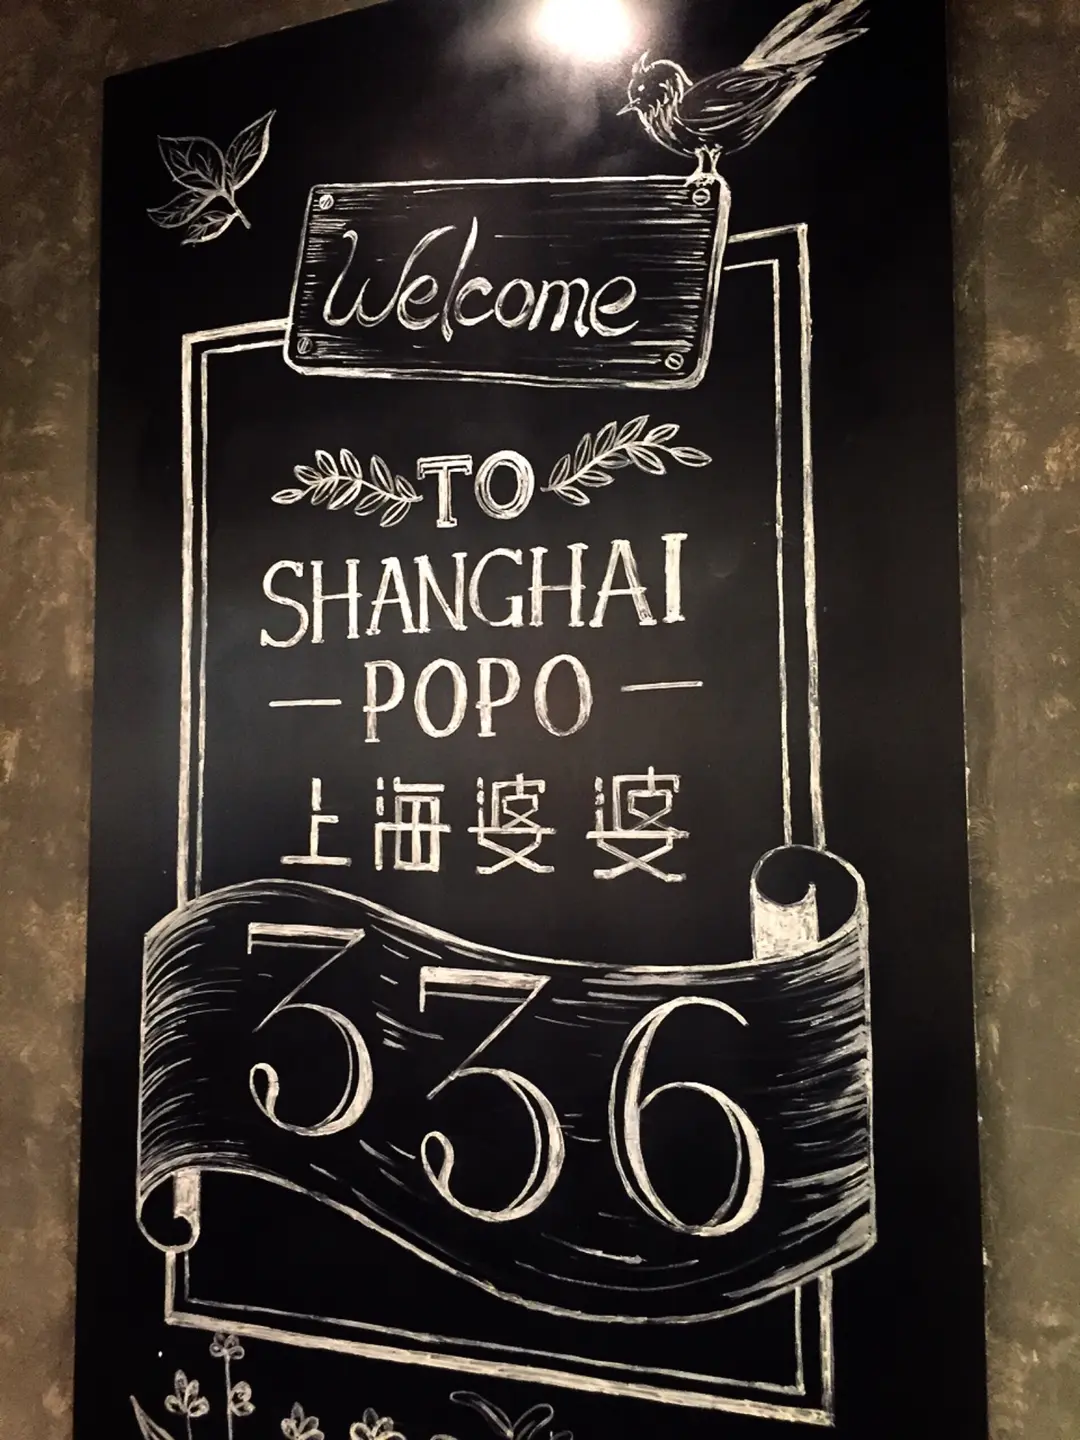 Welcome
TO
SHANGHAI
— POPO —
上海婆婆
336